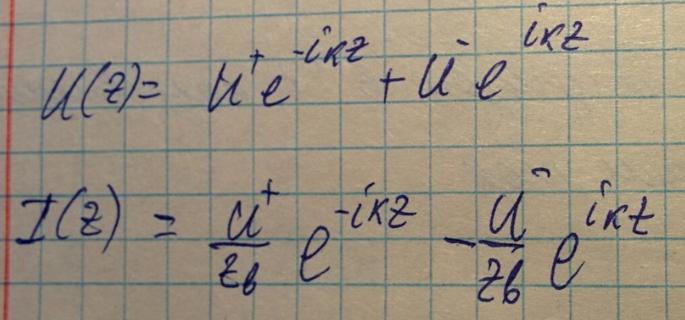 U(z) = U⁺e^{-ikz} + U⁻e^{ikz}
I(z) = U⁺/z_в e^{-ikz} - U⁻/z_в e^{ikz}